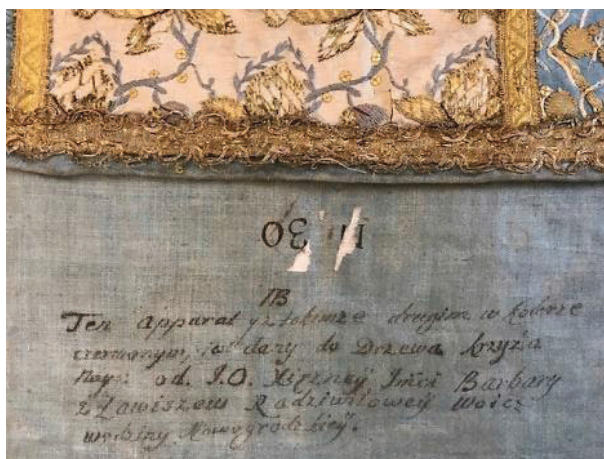 30
NB
Ten apparat y z tokimze drugim w kolorze
czerwonym, są dary do Drzewa krzyża
od. J.O. Xiężney Jmći Barbary
z Zawiszow Radziwiłowey woiez
wodziny Nowogrodzkiey.